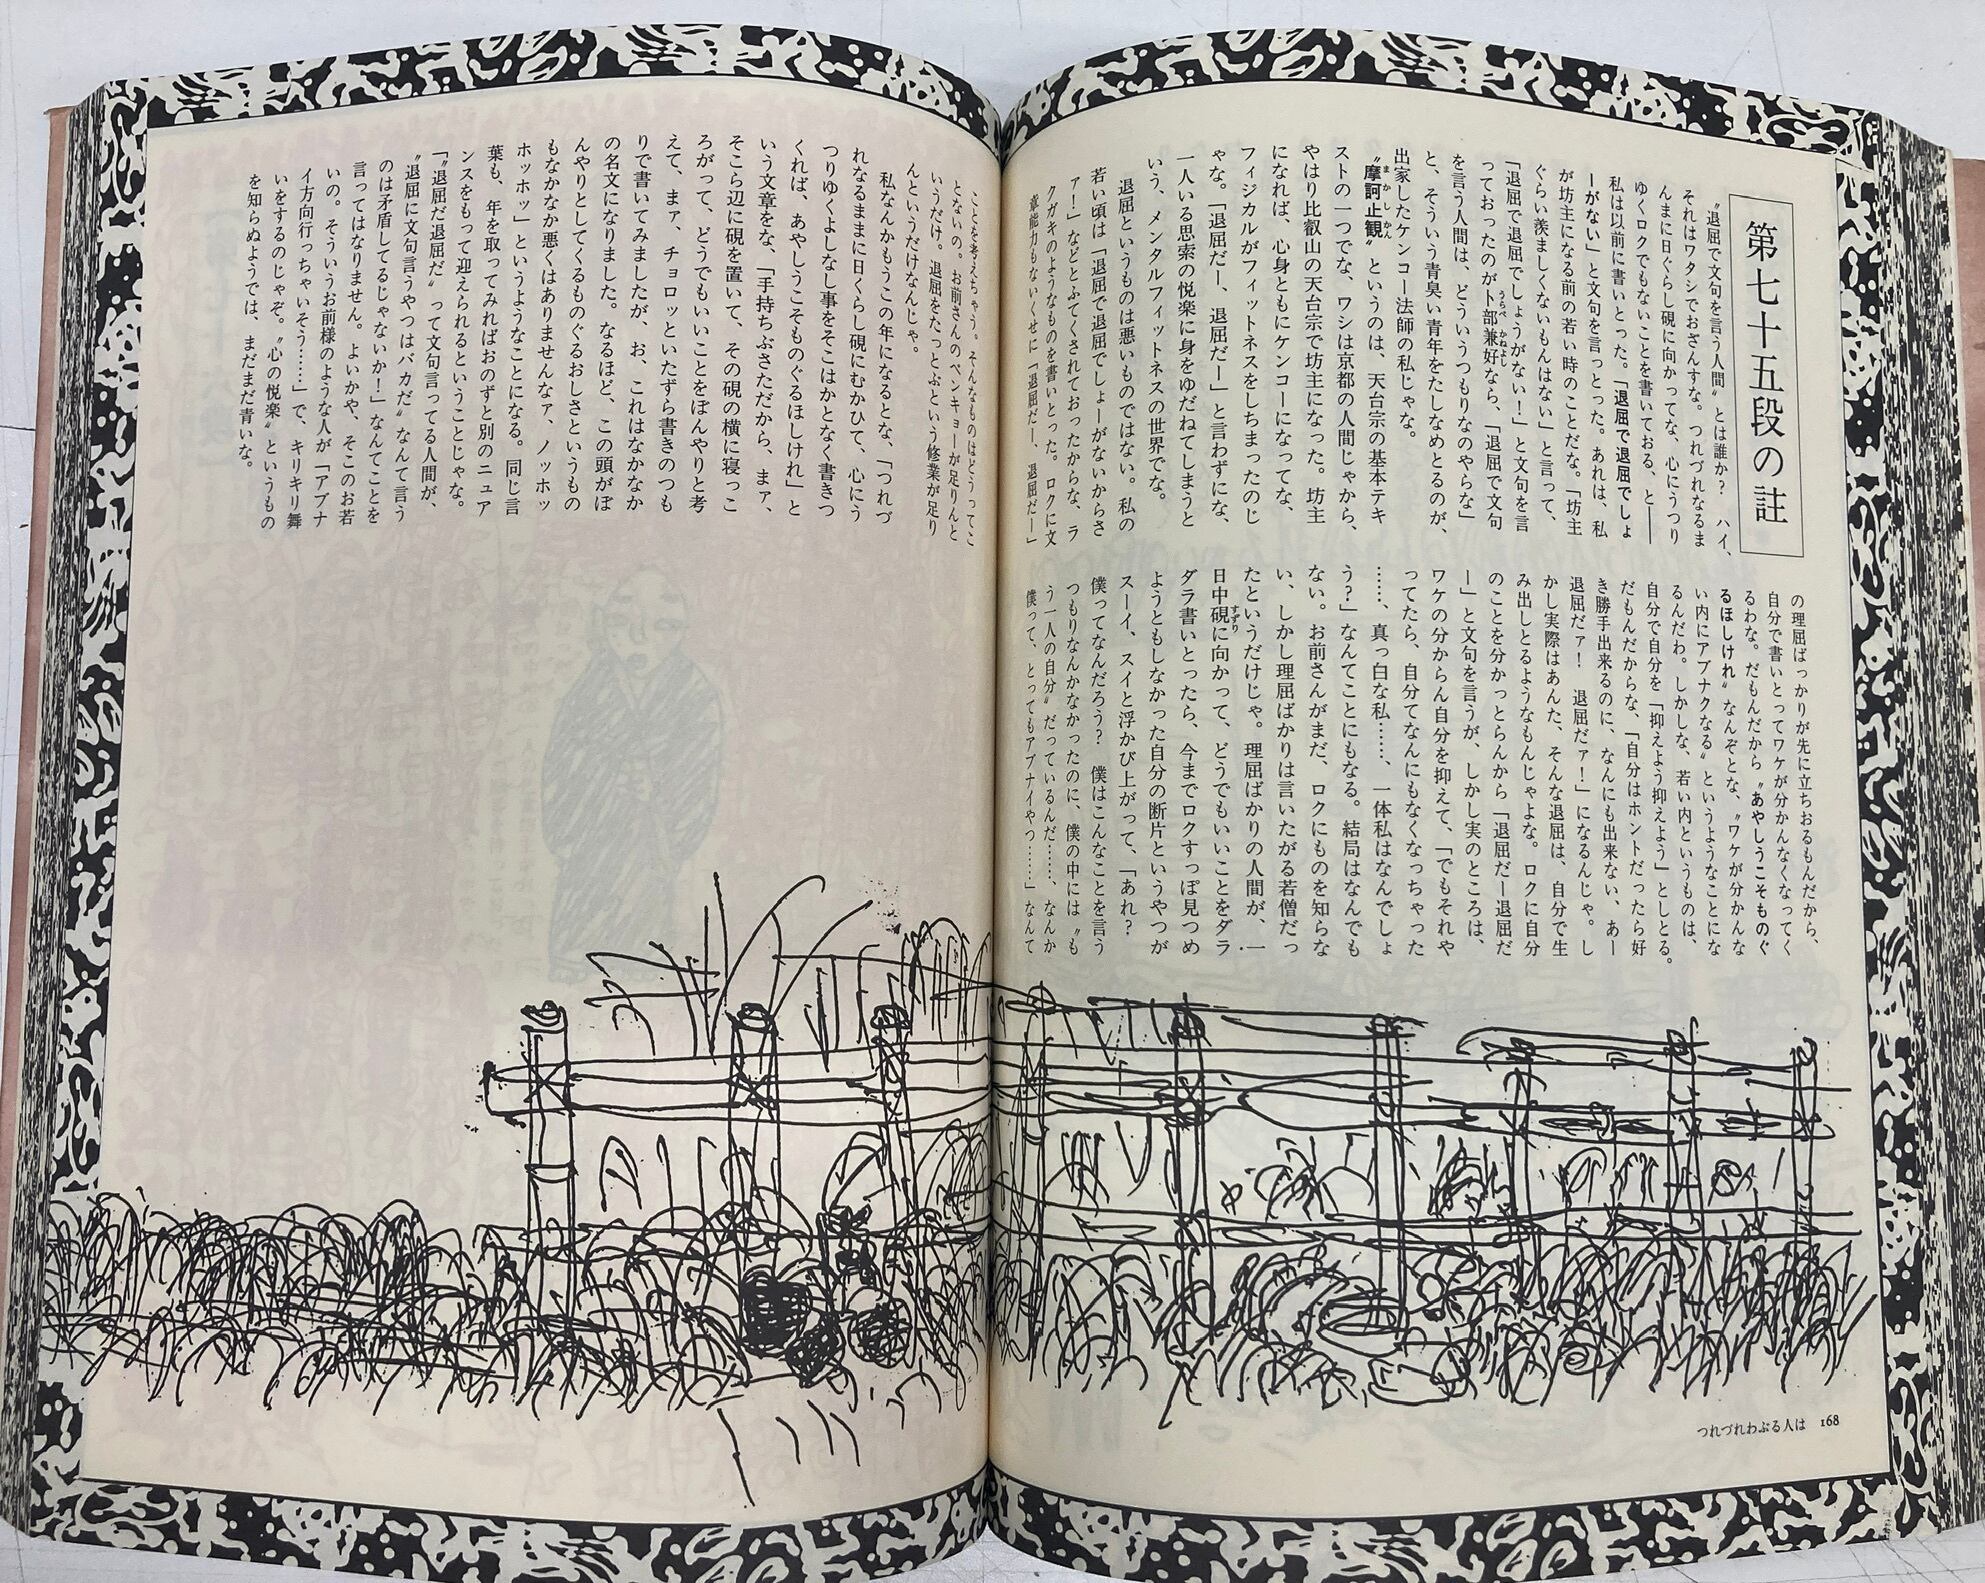 第七十五段の註
〝退屈で文句を言う人間〟とは誰か？　ハイ、
それはワタシでおざんすな。つれづれなるま
んまに日ぐらし硯に向かってな、心にうつり
ゆくロクでもないことを書いておる、と――
私は以前に書いとった。「退屈で退屈でしょ
ーがない」と文句を言っとった。あれは、私
が坊主になる前の若い時のことだな。「坊主
ぐらい羨ましくないもんはない」と言って、
「退屈で退屈でしょうがない！」と文句を言
っておったのが卜部兼好なら、「退屈で文句
を言う人間は、どういうつもりなのやらな」
と、そういう青臭い青年をたしなめとるのが、
出家したケンコー法師の私じゃな。
〝摩訶止観〟というのは、天台宗の基本テキ
ストの一つでな、ワシは京都の人間じゃから、
やはり比叡山の天台宗で坊主になった。坊主
になれば、心身ともにケンコーになってな、
フィジカルがフィットネスをしちまったのじ
ゃな。「退屈だー、退屈だー」と言わずにな、
一人いる思索の悦楽に身をゆだねてしまうと
いう、メンタルフィットネスの世界でな。
退屈というものは悪いものではない。私の
若い頃は「退屈で退屈でしょーがないからさ
ァ！」などとふてくされておったからな、ラ
クガキのようなものを書いとった。ロクに文
章能力もないくせに「退屈だー、退屈だー」
の理屈ばっかりが先に立ちおるもんだから、
自分で書いとってワケが分かんなくなってく
るわな。だもんだから〝あやしうこそものぐ
るほしけれ〟なんぞとな、〝ワケが分かんな
い内にアブナクなる〟というようなことにな
るんだわ。しかしな、若い内というものは、
自分で自分を「抑えよう抑えよう」としとる。
だもんだからな、「自分はホントだったら好
き勝手出来るのに、なんにも出来ない、あー
退屈だァ！　退屈だァ！」になるんじゃ。し
かし実際はあんた、そんな退屈は、自分で生
み出しとるようなもんじゃよな。ロクに自分
のことを分かっとらんから「退屈だー退屈だ
ー」と文句を言うが、しかし実のところは、
ワケの分からん自分を抑えて、「でもそれや
ってたら、自分てなんにもなくなっちゃった
……、真っ白な私……、一体私はなんでしょ
う？」なんてことにもなる。結局はなんでも
ない。お前さんがまだ、ロクにものを知らな
い、しかし理屈ばかりは言いたがる若僧だっ
たというだけじゃ。理屈ばかりの人間が、一
日中硯に向かって、どうでもいいことをダラ
ダラ書いとったら、今までロクすっぽ見つめ
ようともしなかった自分の断片というやつが
スーイ、スイと浮かび上がって、「あれ？
僕ってなんだろう？　僕はこんなことを言う
つもりなんかなかったのに、僕の中には〝も
う一人の自分〟だっているんだ……、なんか
僕って、とってもアブナイやつ……」なんて
ことを考えちゃう。そんなものはどうってこ
とないの。お前さんのベンキョーが足りんと
いうだけ。退屈をたっとぶという修業が足り
んというだけなんじゃ。
私なんかもうこの年になるとな、「つれづ
れなるままに日くらし硯にむかひて、心にう
つりゆくよしなし事をそこはかとなく書きつ
くれば、あやしうこそものぐるほしけれ」と
いう文章をな、「手持ちぶさただから、まァ、
そこら辺に硯を置いて、その硯の横に寝っこ
ろがって、どうでもいいことをぼんやりと考
えて、まァ、チョロッといたずら書きのつも
りで書いてみましたが、お、これはなかなか
の名文になりました。なるほど、この頭がぼ
んやりとしてくるものぐるおしさというもの
もなかなか悪くはありませんなァ、ノッホッ
ホッホッ」というようなことになる。同じ言
葉も、年を取ってみればおのずと別のニュア
ンスをもって迎えられるということじゃな。
「〝退屈だ退屈だ〟って文句言ってる人間が、
〝退屈に文句言うやつはバカだ〟なんて言う
のは矛盾してるじゃないか！」なんてことを
言ってはなりません。よいかや、そこのお若
いの。そういうお前様のような人が「アブナ
イ方向行っちゃいそう……」で、キリキリ舞
いをするのじゃぞ。〝心の悦楽〟というもの
を知らぬようでは、まだまだ青いな。
つれづれわぶる人は　168